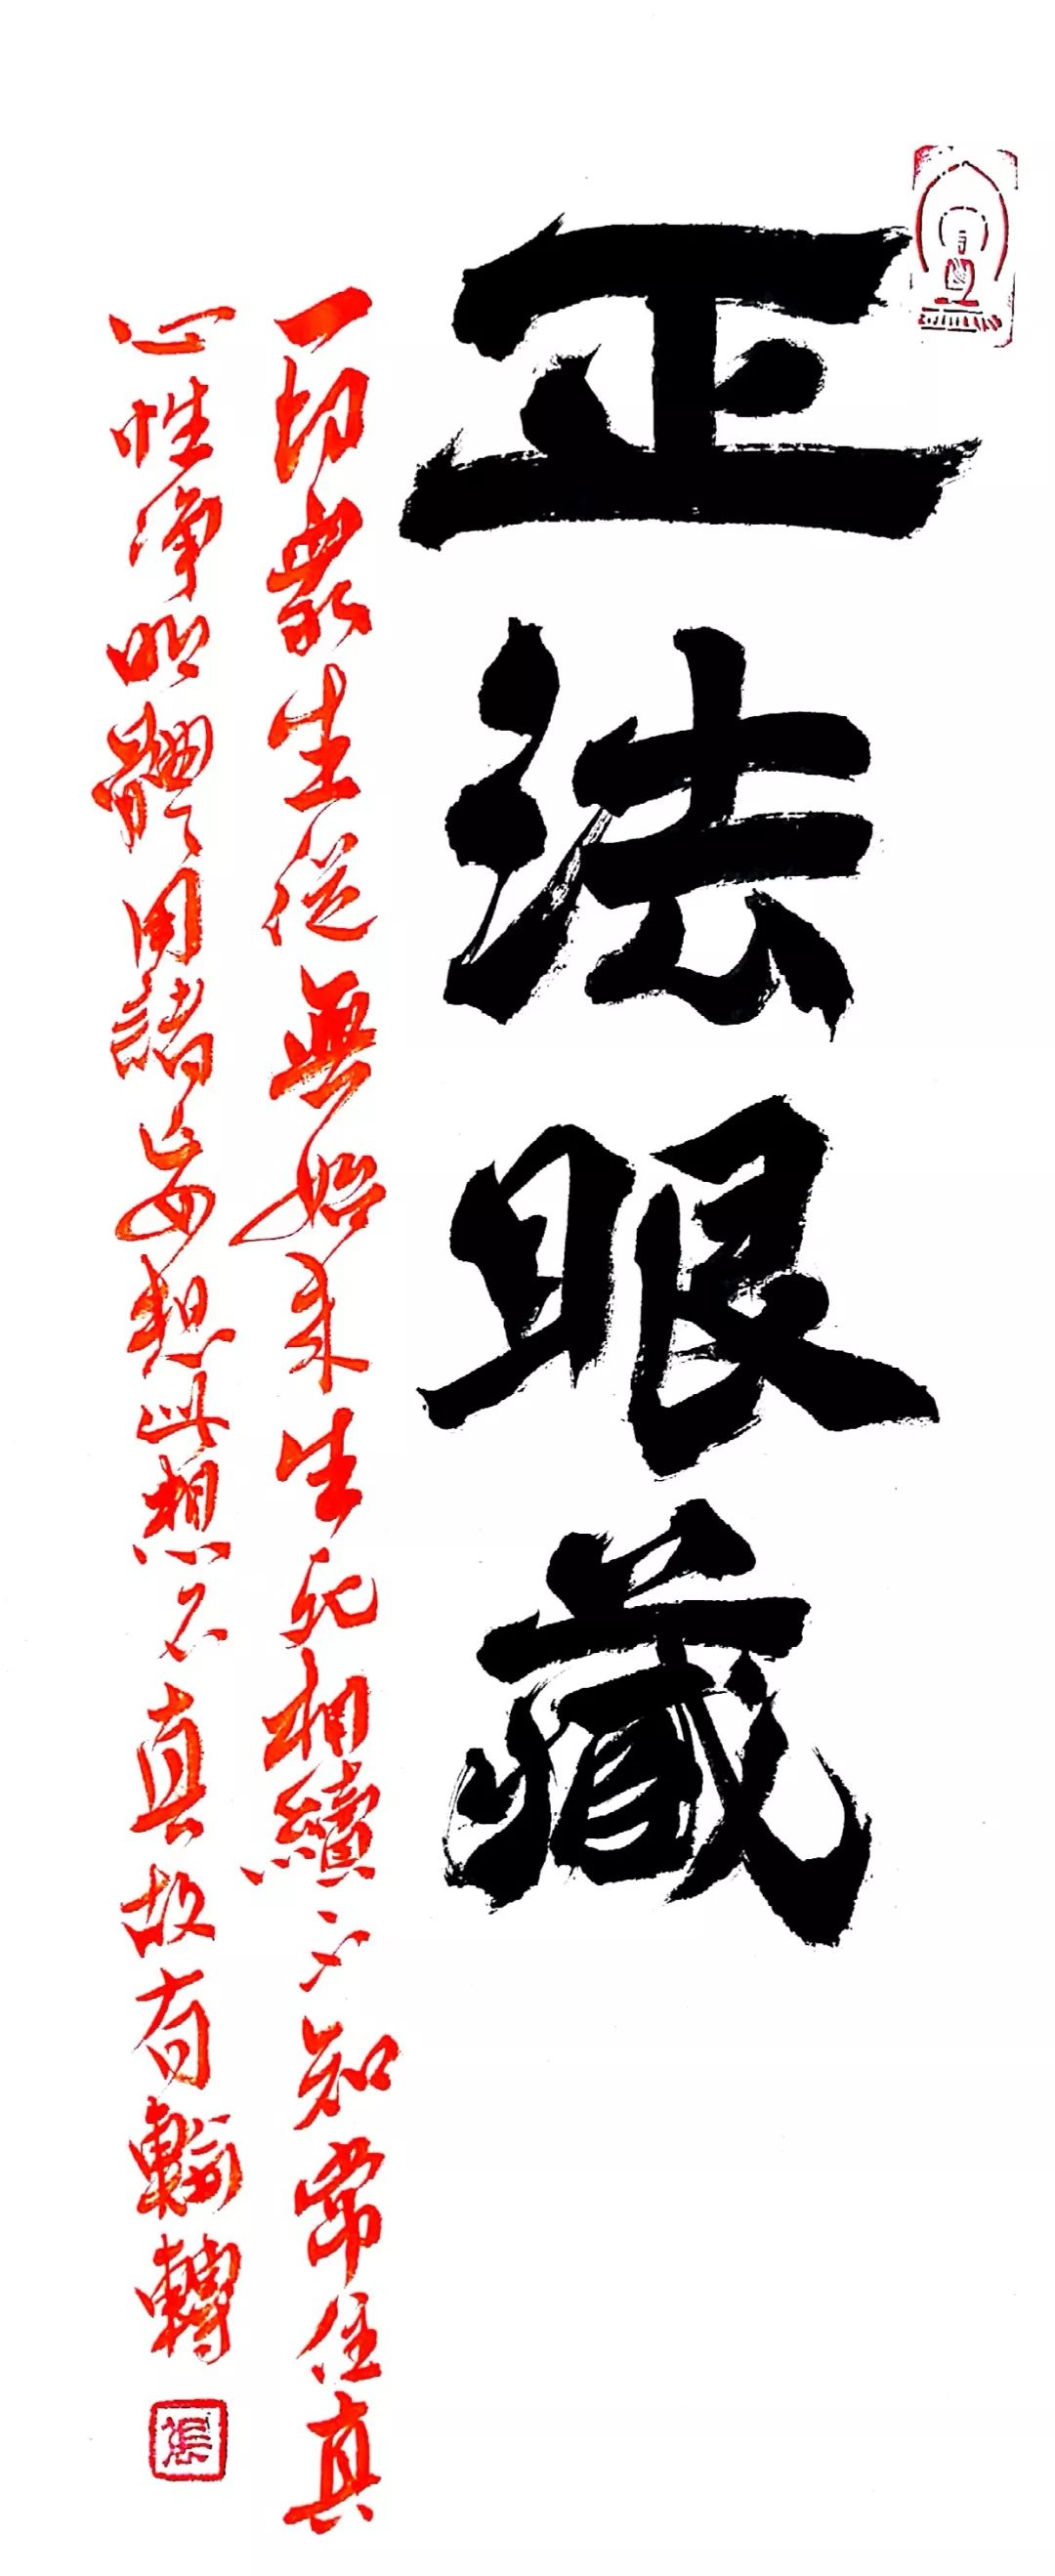 正法眼藏
一切衆生從無始来生死相續不知常住真
心性净明體用諸妄想此想不真故有輪轉